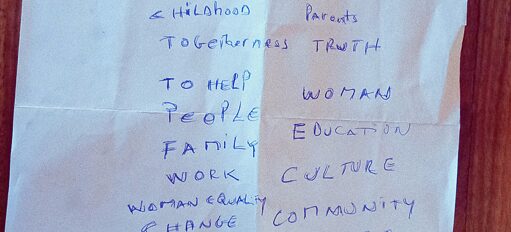 CHiLDhooD
TOGetherness
TO HELP
PeOPLE
FAMiLY
WORK
WOMAN EQUALiTY
CHANGE
Parents
TRWTH
WOMAN
EDUCATiON
CULTURE
COMMUNiTY